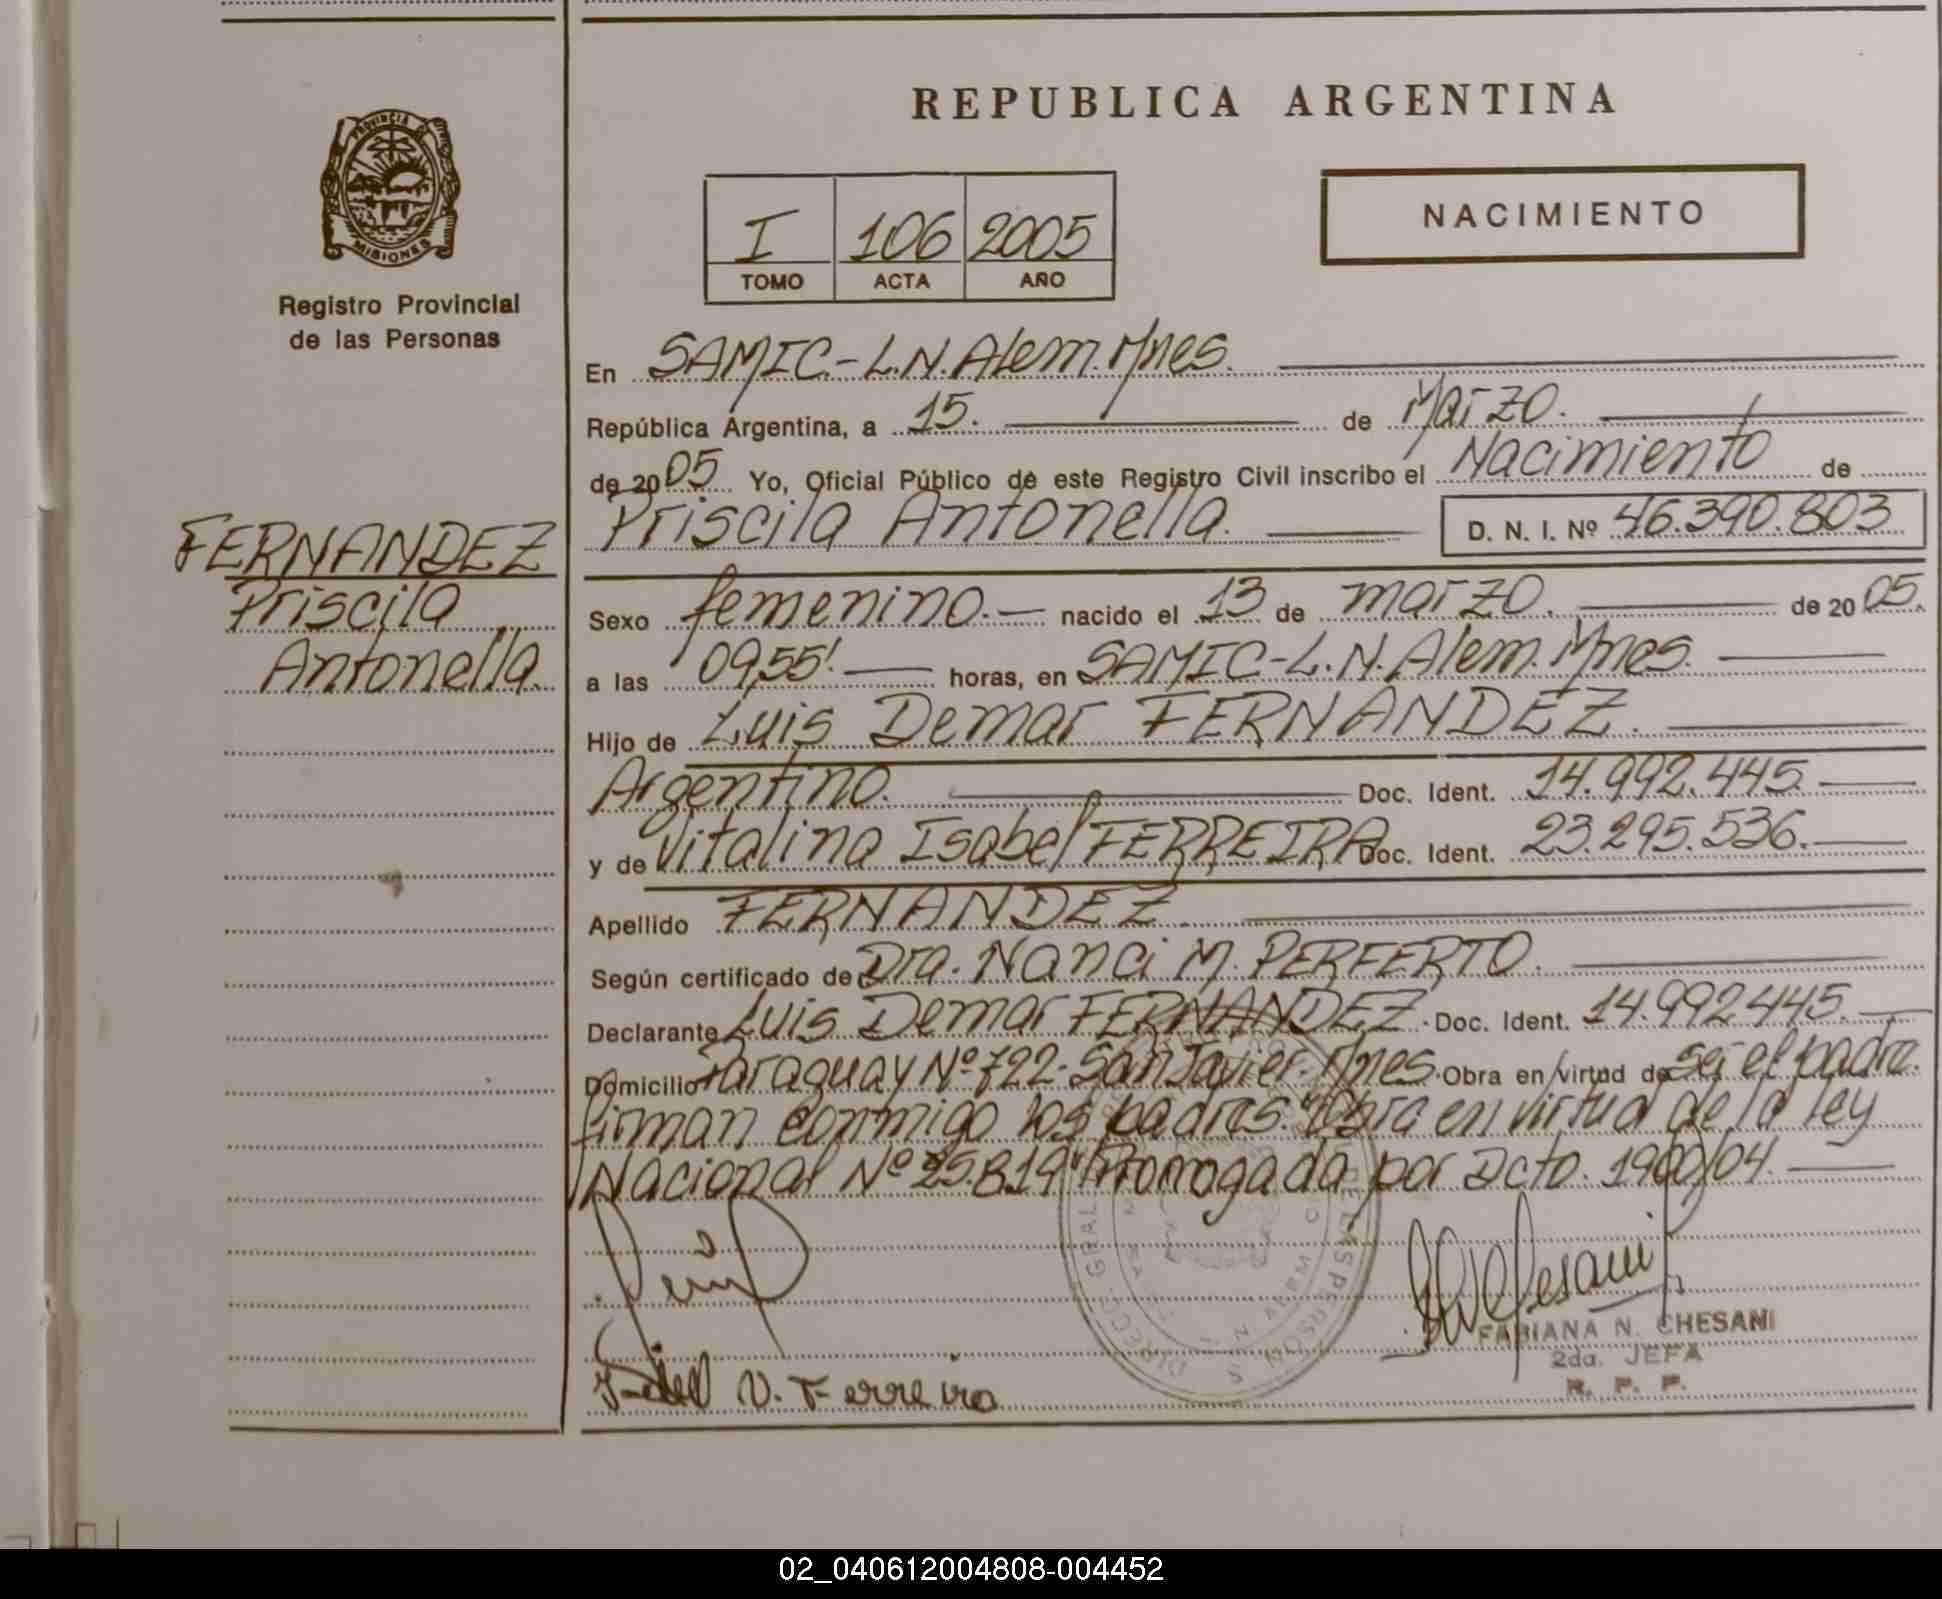 REPUBLICA ARGENTINA
PROVINCIA DE
MISIONES
Registro Provincial
de las Personas
I 106 2005
TOMO ACTA AÑO
NACIMIENTO
En SAMIC.-L.N.Alem.Mnes.
República Argentina, a 15. de Marzo.
de 2005 Yo, Oficial Público de este Registro Civil inscribo el Nacimiento de
Priscila Antonella. D. N. I. Nº 46.390.803
FERNANDEZ
Priscila
Antonella.
Sexo femenino.- nacido el 13 de marzo. de 2005.
a las 09,55'. horas, en SAMIC-L.N.Alem.Mnes.
Hijo de Luis Demar FERNANDEZ.
Argentino. Doc. Ident. 14.992.445.
y de Vitalina Isabel FERREIRA Doc. Ident. 23.295.536.
Apellido FERNANDEZ.
Según certificado de Dra. Nanci M. PERFERTO.
Declarante Luis Demar FERNANDEZ. Doc. Ident. 14.992445.
Domicilio Paraguay Nº 722-San Javier.Mnes. Obra en virtud de ser el padre.
firman conmigo los padres. "Obra en virtud de la ley
Nacional Nº 25.819" Prorrogada por Dcto. 1900/04.
FABIANA N. CHESANI
2da. JEFA
R. P. P.
V. Ferreira
02_040612004808-004452